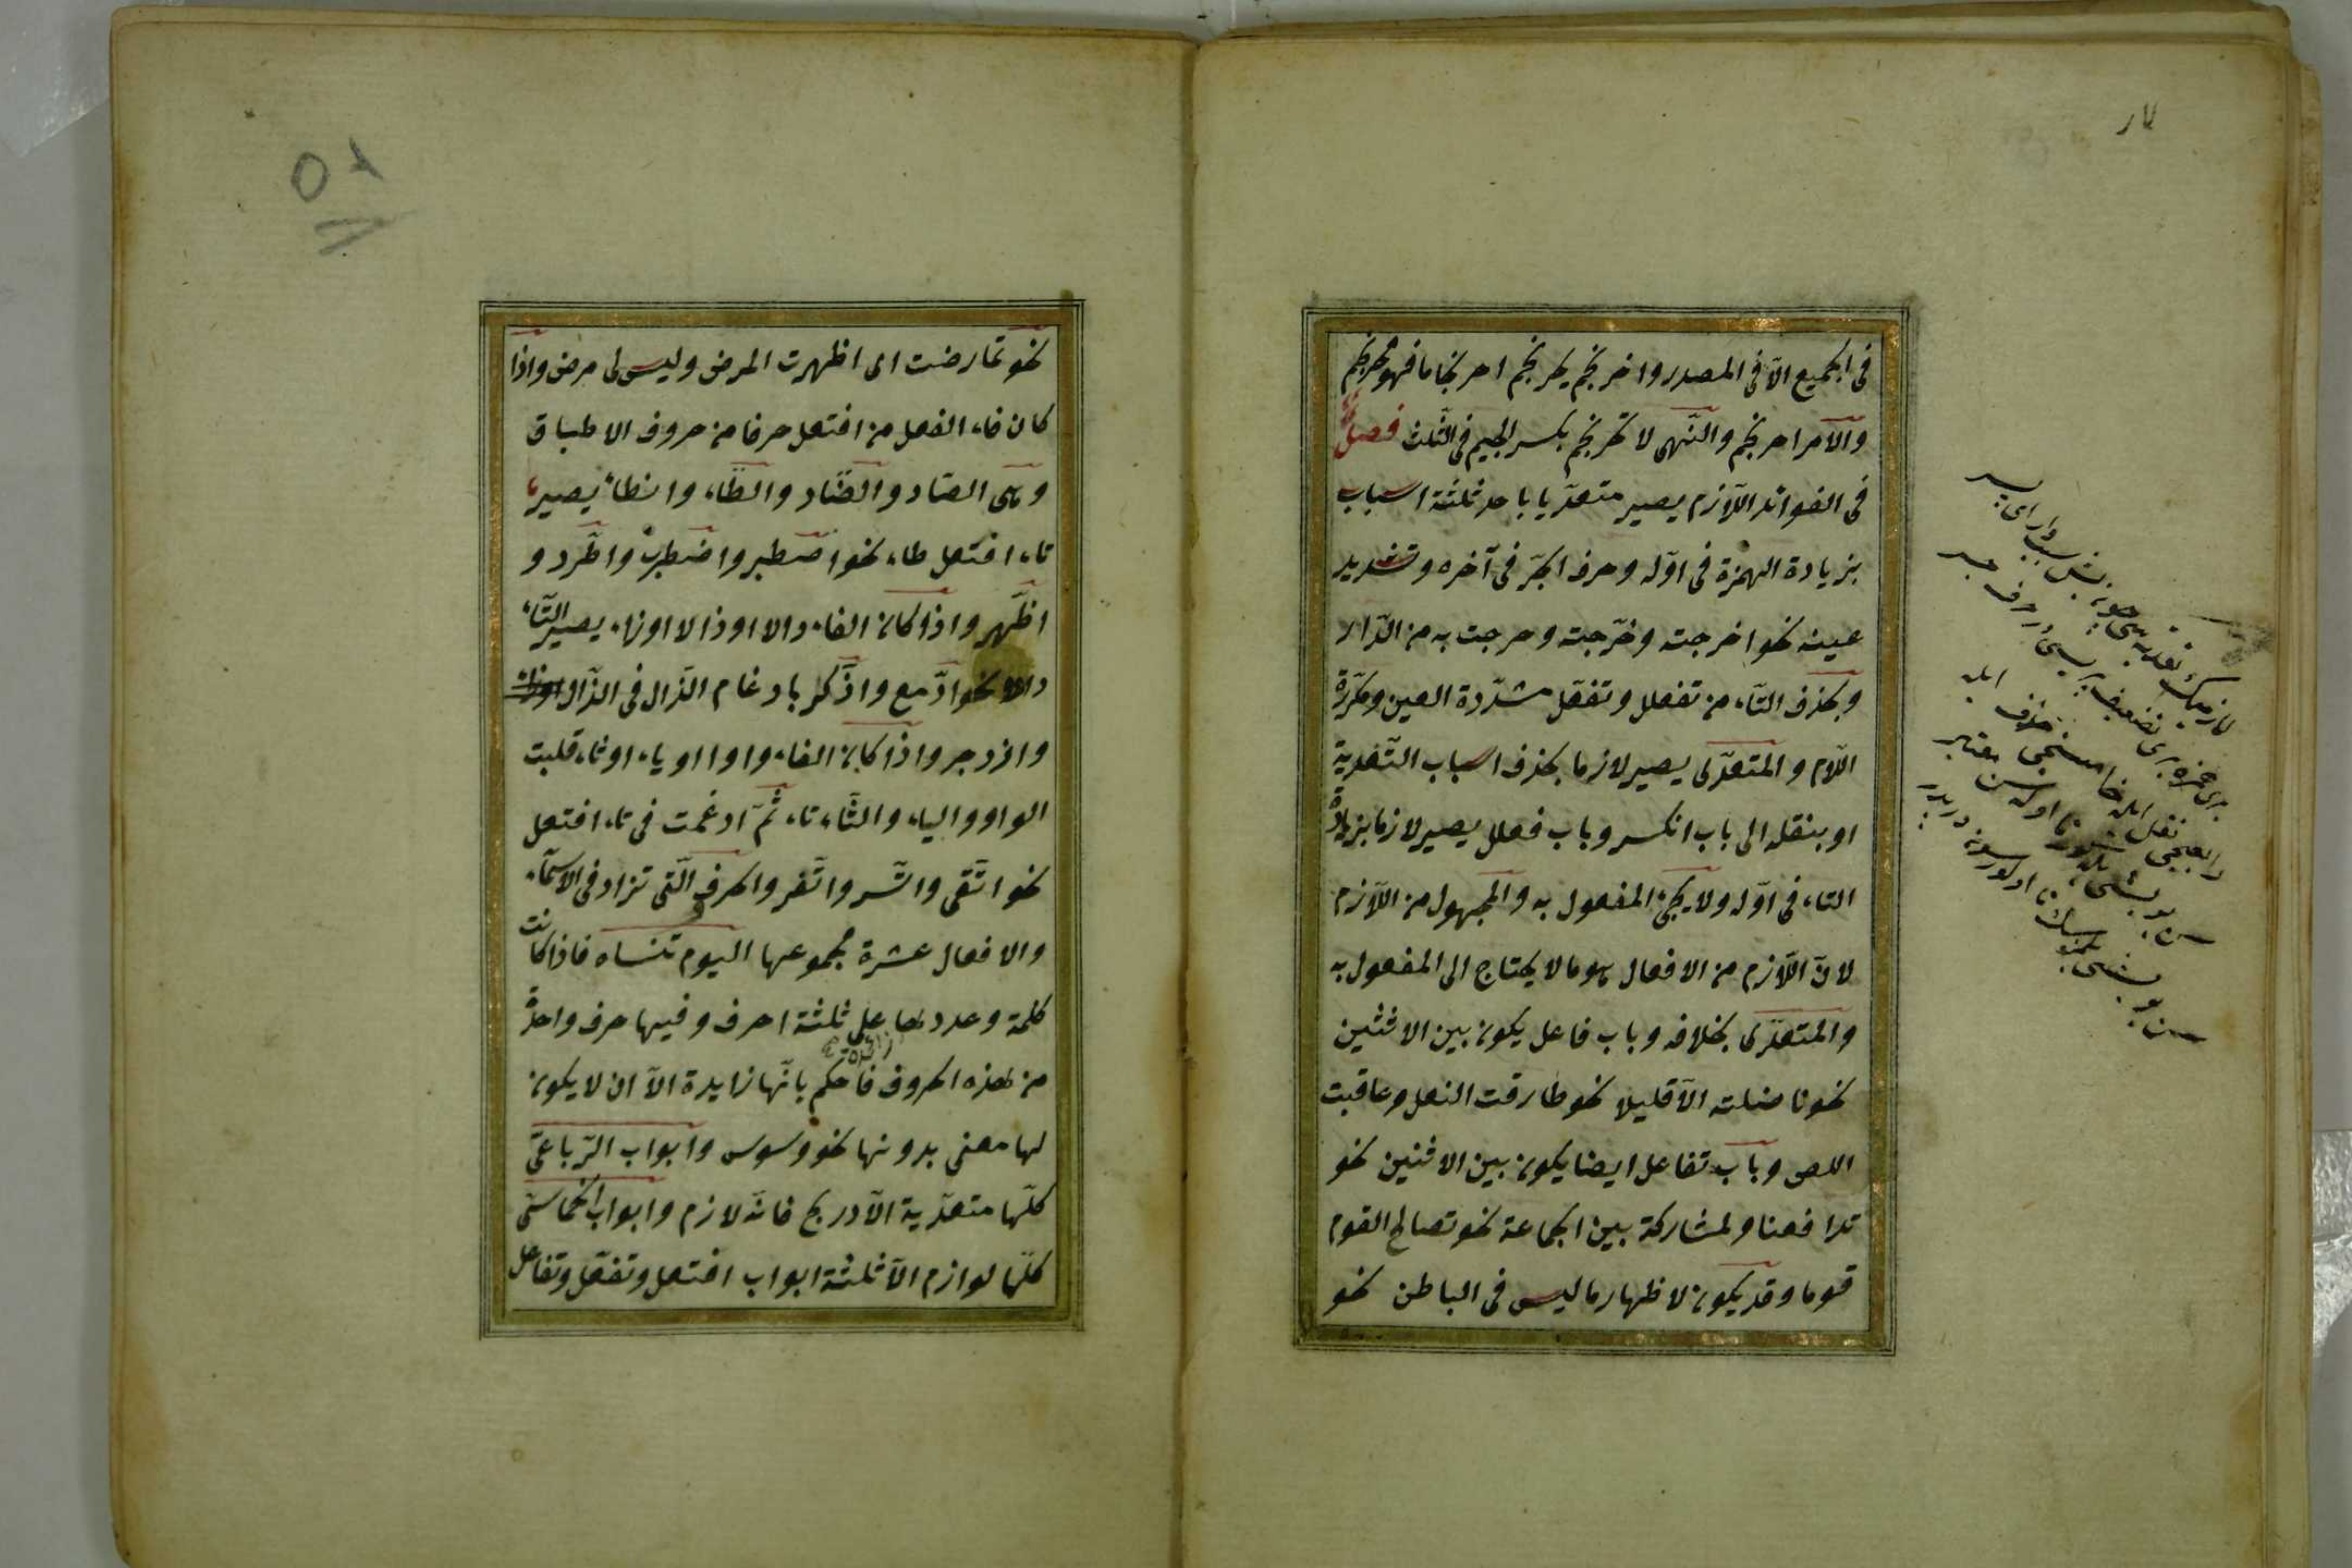 في الجميع الّا في المصدر واحرنجم يحرنجم احرنجاما فهو محرنجم
والأمر احرنجم والنّهى لا تحرنجم بكسر الجيم في الثّلث فصلٌ
في الفوائد اللّازم يصير متعدّيا باحد ثلثة اسباب
بزيادة الهمزة في اوّله وحرف الجرّ في آخره وتشديد
عينه نحو اخرجته وخرّجته وخرجت به من الدّار
وبحذف التّاء من تفعلل وتفعّل مشدّدة العين ومكرّرة
اللّام والمتعدّى يصير لازما بحذف اسباب التّعدية
او بنقله الى باب انكسر وباب فعلل يصير لازما بزيادة
التاء في اوّله ولا يجئ المفعول به والمجهول من اللّازم
لانّ اللّازم من الافعال هو ما لا يحتاج الى المفعول به
والمتعدّى بخلافه وباب فاعل يكون بين الاثنين
نحو ناضلته الّا قليلا نحو طارقت النعل وعاقبت
اللص وباب تفاعل ايضا يكون بين الاثنين نحو
تدافعنا ولمشاركة بين الجماعة نحو تصالح القوم
قوما وقد يكون لاظهار ما ليس في الباطن نحو
نحو تمارضت اى اظهرت المرض وليس لى مرض واذا
كان فاء الفعل من افتعل حرفا من حروف الاطباق
وهى الصّاد والضّاد والطّاء والظاء يصير
تاء افتعل طاء نحو اصطبر واضطرب واطّرد و
اظّهر واذا كان الفاء دالا او ذالا او زاء يصير التّاء
دالا نحو ادّمع واذّكر بادغام الذال في الذّال
وازدجر واذا كان الفاء واوا او ياء او ثاء قلبت
الواو والياء والثّاء تاء ثمّ ادغمت في تاء افتعل
نحو اتّقى واتّسر واتّغر والحرف الّتى تزاد في الاسماء
والافعال عشرة مجموعها اليوم تنساه فاذا كانت
كلمة وعددها على ثلثة احرف وفيها حرف واحدة
زائدة
من هذه الحروف فاحكم بانّها زايدة الّا ان لا يكون
لها معنى بدونها نحو وسوس وابواب الرّباعىّ
كلّها متعدّية الّا دربح فانّه لازم وابواب الخماسىّ
كلّها لوازم الّا ثلثة ابواب افتعل وتفعّل وتفاعل